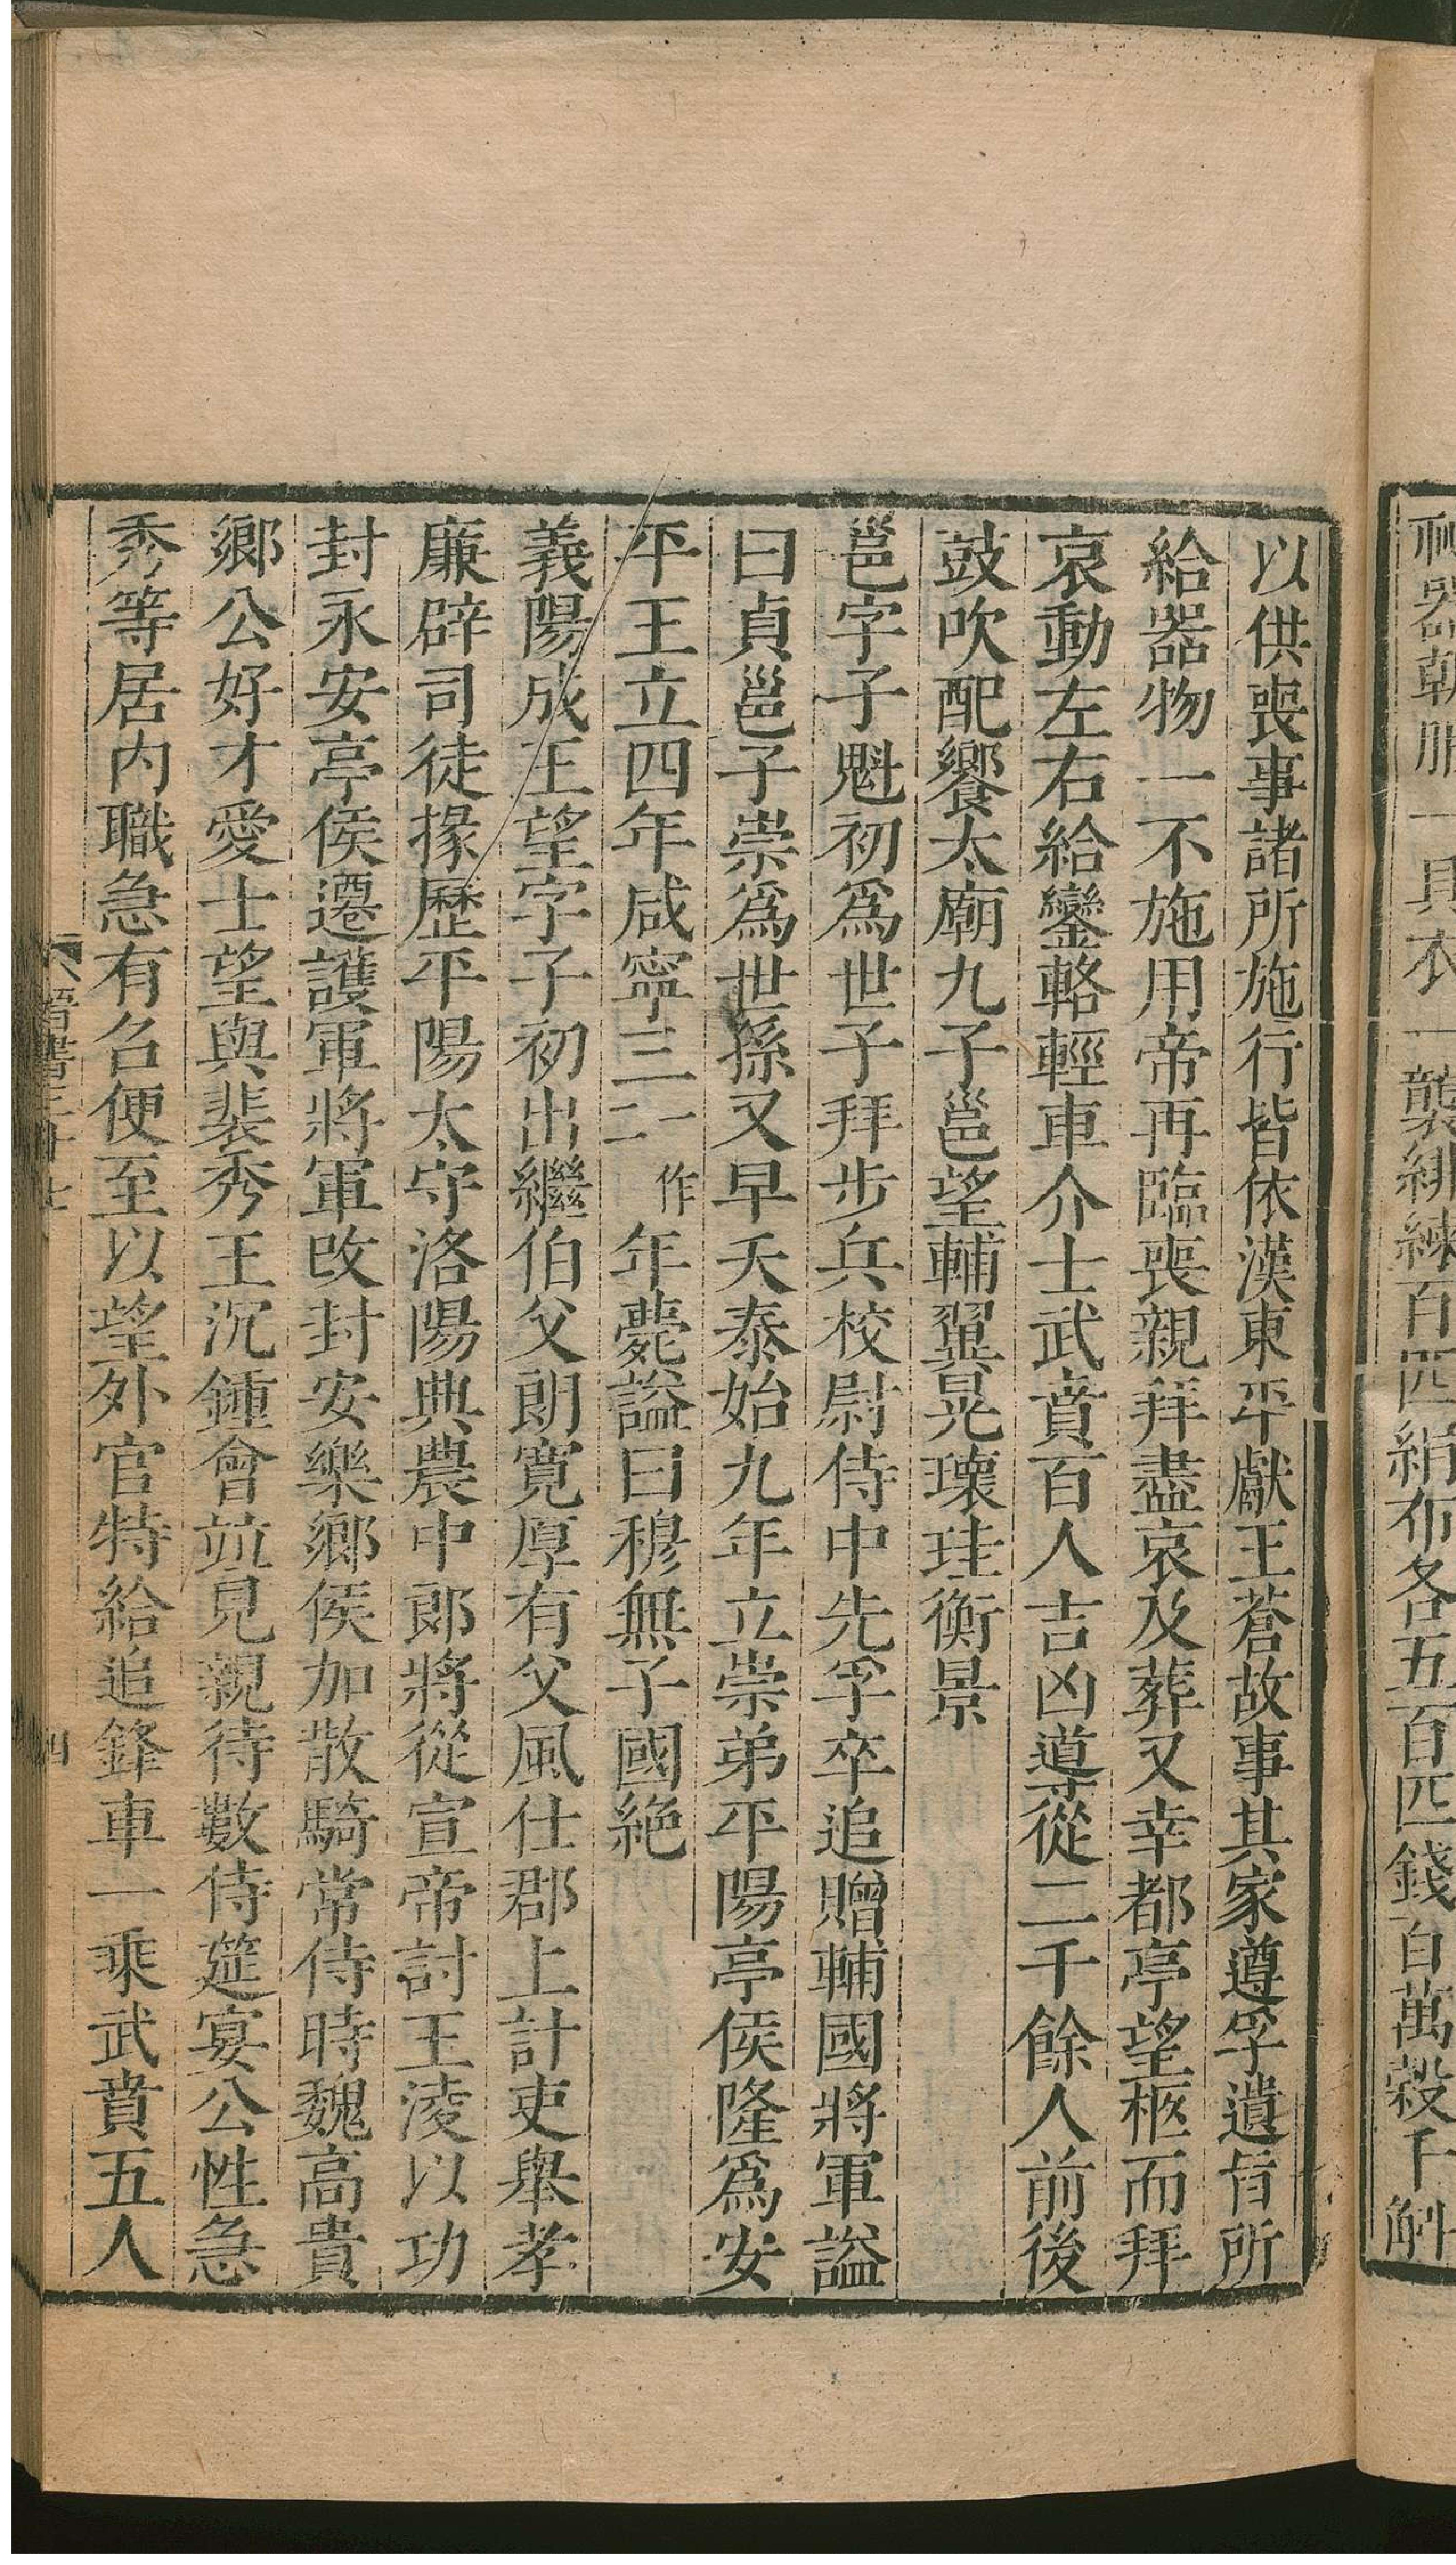 祕器朝服一具衣一襲緋練百匹絹布各五百匹錢百萬穀千斛
以供喪事諸所施行皆依漢東平獻王蒼故事其家遵孚遺旨所
給器物一不施用帝再臨喪親拜盡哀及葬又幸都亭望柩而拜
哀動左右給鑾輅輕車介士武賁百人吉凶導從二千餘人前後
鼓吹配饗太廟九子邕望輔翼晃瓌珪衡景
邕字子魁初爲世子拜步兵校尉侍中先孚卒追贈輔國將軍謚
曰貞邕子崇爲世孫又早夭泰始九年立崇弟平陽亭侯隆爲安
平王立四年咸寧三一作二年薨謚曰穆無子國絶
義陽成王望字子初出繼伯父朗寬厚有父風仕郡上計吏舉孝
廉辟司徒掾歷平陽太守洛陽典農中郎將從宣帝討王淩以功
封永安亭侯遷護軍將軍改封安樂鄉侯加散騎常侍時魏高貴
鄉公好才愛士望與裴秀王沉鍾會竝見親待數侍筵宴公性急
秀等居内職急有名便至以望外官特給追鋒車一乘武賁五人
晉書三十七
四